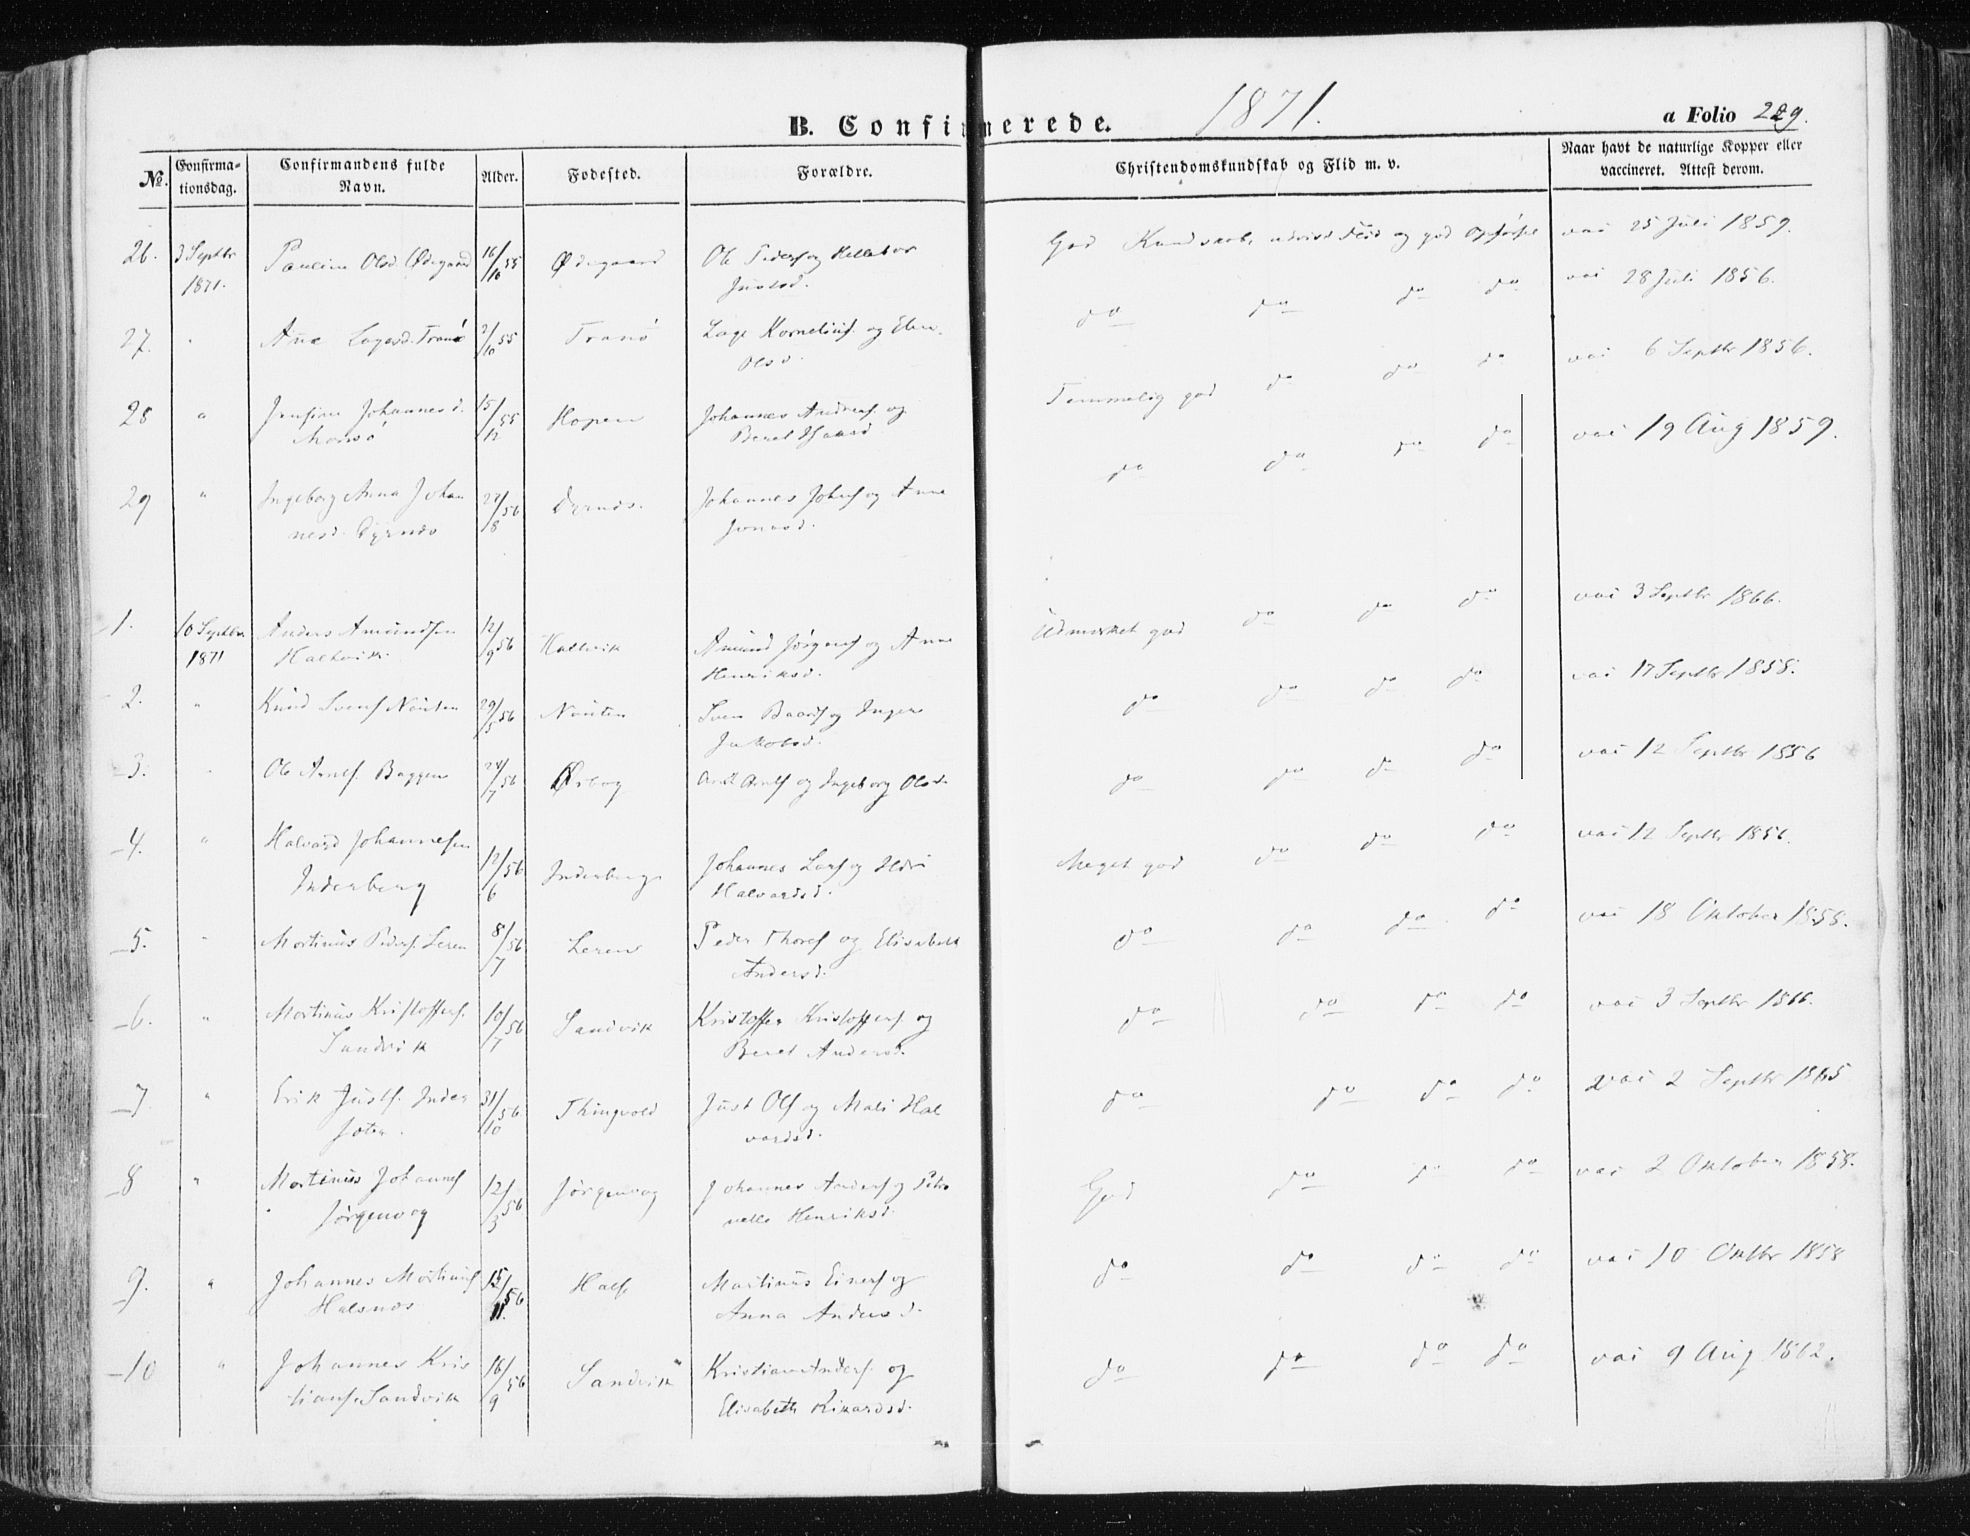 1871.
B. Confirmerede.
a Folio 229.
No.
Confirma-
tionsdag.
Confirmandens fulde
Navn.
Alder.
Fødested.
Forældre.
Christendomskundskab og Flid m. v.
Naar havt de naturlige Kopper eller
vaccineret. Attest derom.
26. 3 Septbr Pauline Olsd. Ødegaard 16/10 55 Ødegaard Ole Pedersf og God Kundskab, udvist Flid og god Opførsel vac 25 Juli 1859.
1871. Justsd.
27. " Ane Lagesd. Tranö 2/10 55 Tranö Lage Kornelius. og do do do do vac 28 Juli 1856.
Olsd.
28 " Jensine Johannesd. 15/12 55 Hopen Johannes Andersf. og Temmelig god do do do vac 6 Septbr 1856.
Beret
29 " Ingeborg Anna Johan 27/8 56 Dyrnæs. Johannes Johnsf og Anne do do do do vac 19 Aug 1859.
nesd. Dyrnæs Jonasd.
1. 10 Septbr. Anders Amundsen 12/9 56 Halvik Amund Jörgensf og Anne Udmærket god do do do vac 3 Septbr 1866.
1871 Henriksd.
2. " Knud Svensf Nauten 29/5 56 Nauten Sven Baardsf og Inger do do do do vac 17 Septbr 1858.
Jakobsd.
3. " Ole Arntsf. Baggen 24/7 56 Ørbog Arnt Arntsf og Ingeborg Olsd. do do do do vac 12 Septbr 1856
4. " Halvard Johannesen 12/6 56 Inderberg Johannes Larsf og Meget god do do do vac 12 Septbr 1856.
Inderberg Halvardsd.
5. " Martinus Pedersf. Leren 8/7 56 Leren Peder Thoresf og Elisabeth do do do do vac 18 Oktober 1858.
Andersd.
6. " Martinus Kristoffersf. 10/7 56 Sandvik Kristoffer Kristoffersf. og do do do do vac 3 Septbr 1866.
Sandvik Beret Andersd.
7 " Erik Justsf. Inder 31/10 56 Thingvold Just Olsf og Mali Hal do do do do vac 2 Septbr 1865
sæter. vardsd.
8 " Martinus Johannesf 12/3 56 Jørgenvog Johannes Andersf og Petro God do do do vac 2 Oktober 1858.
Jørgenvog nelle Henriksd.
9. " Johannes Martinusf 15/11. 56 Halse Martinus Einersf og do do do do vac 10 Oktbr 1858
Halsnæs Anna Andersd.
10 " Johannes Kris 16/9 56 Sandvik Kristian Andersf. og do do do do vac 9 Aug 1862.
tiansf. Sandvik Elisabeth Rikardsd.